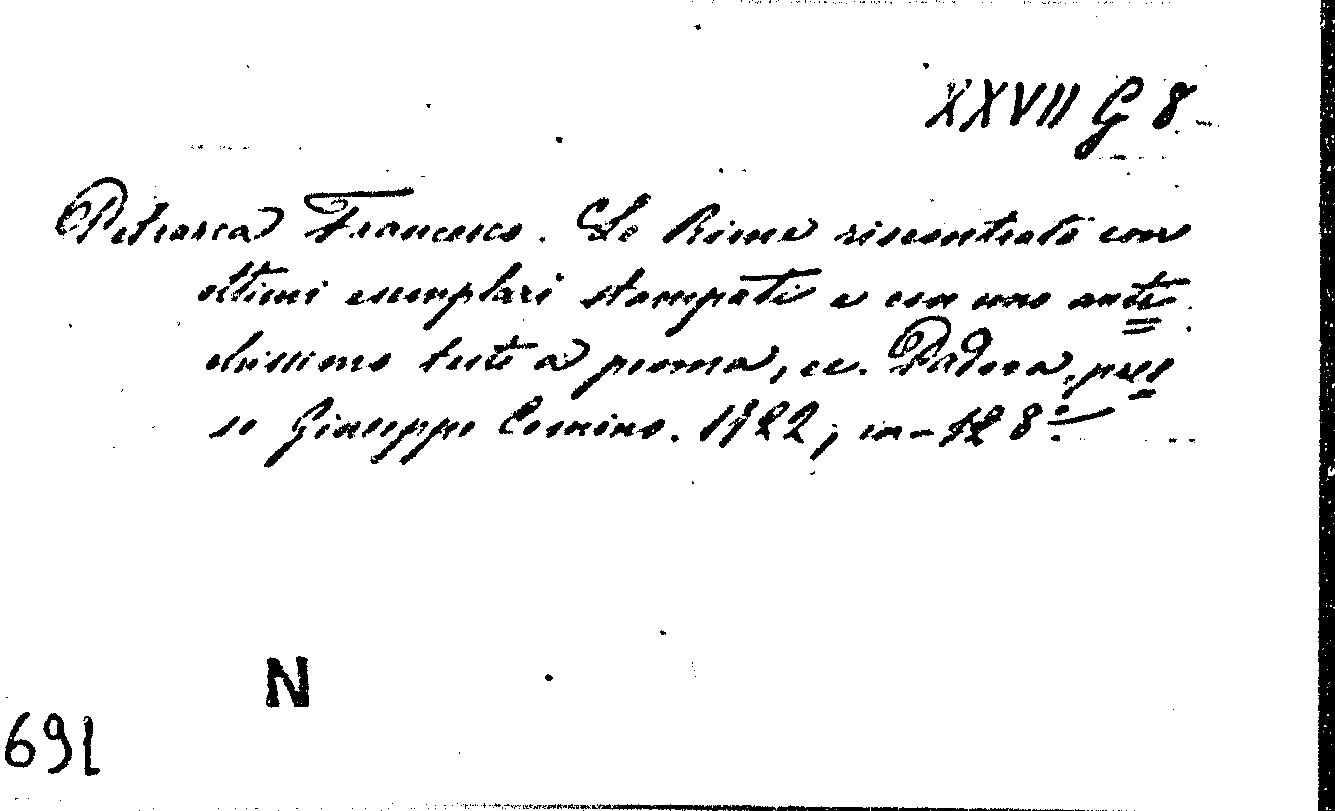 XXVII G 8
Petrarca Francesco. Le Rime riscontrate con
ottimi esemplari stampati e con uno anti=
chissimo testo a penna, ec. Padova, pres=
so Giuseppe Comino. 1722, in-8º
N
691